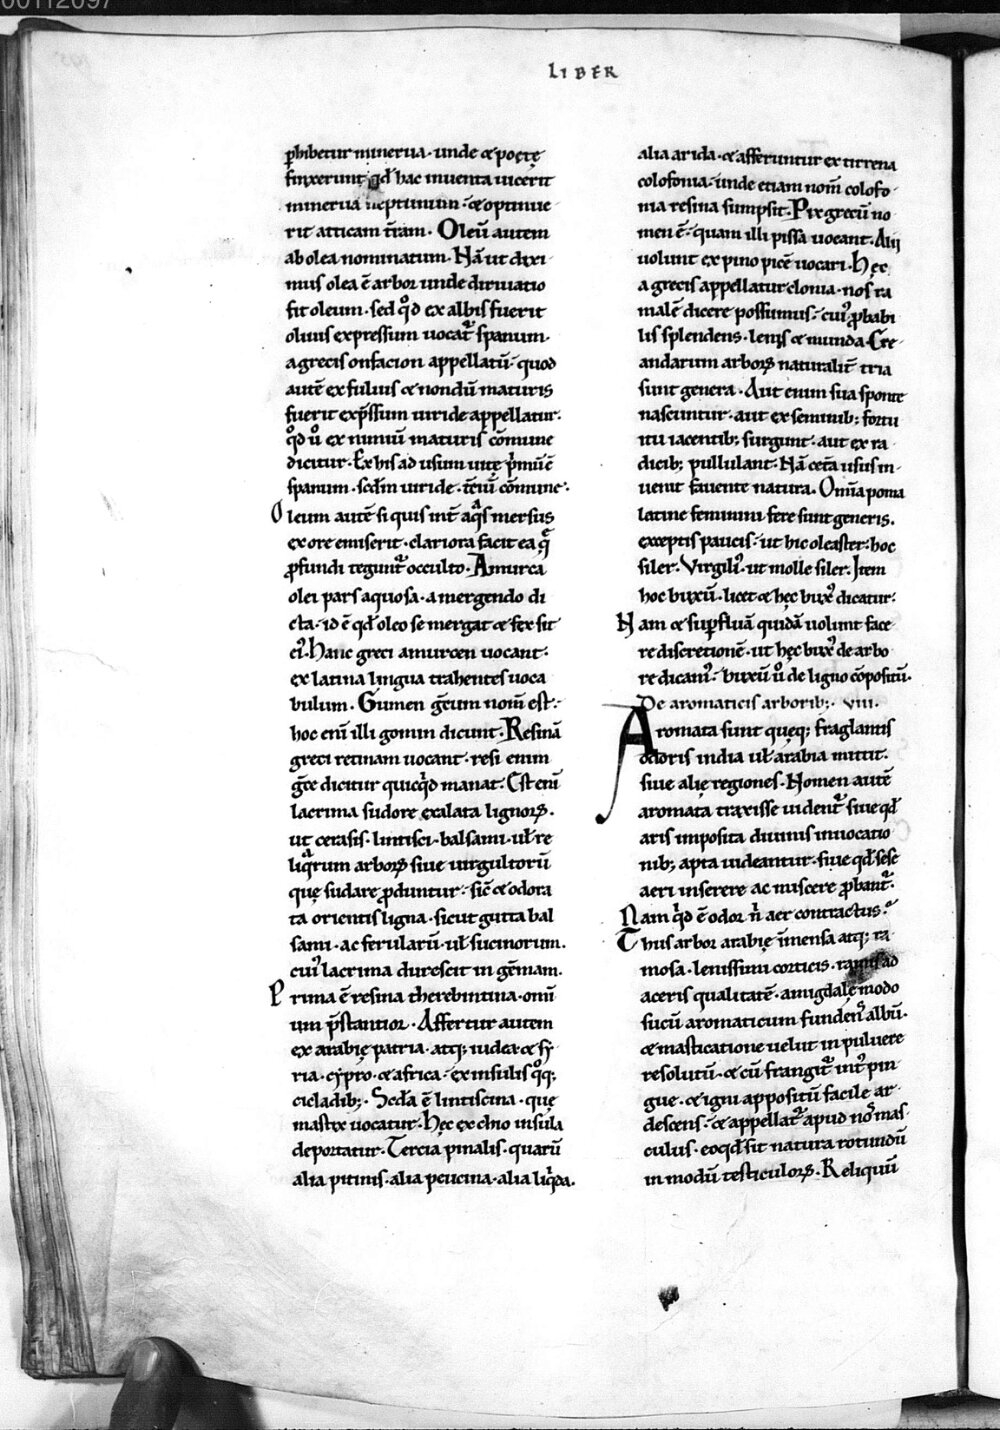 00112097
LIBER
ꝑhibetur minerua· unde & poetę
finxerunt qđ hac inuenta uicerit
minerua neptunum· & optinue
rit atticam t̄ram· Oleū autem
ab olea nominatum· Nā ut dixi
mus olea ē arbor unde diriuatio
fit oleum· sed qͦd ex albis fuerit
oliuis expressum uocat᷑ spanum·
a grecis onfacion appellatū· quod
autē ex fuluis & nondū maturis
fuerit exp̄ssum uiride appellatur·
qͦd ū ex nimiū maturis cōmune
dicitur· Ex his ad usum uitę p̄mū ē
spanum· scd̄m uiride· t̄ciū cōmune·
Oleum autē si quis int̄ aqͣs mersus
ex ore emiserit· clariora facit ea qͣ̄
ꝓfundi tegunt᷑ occulto· Amurca
olei pars aquosa· a mergendo di
cta· id ē qđ oleo se mergat & fex sit
ei᷒· Hanc greci amurcen uocant·
ex latina lingua trahentes uoca
bulum· Gumen grēcum nom̄ est·
hoc eni illi gomin dicunt· Resinā
greci retinam uocant· resi enim
grēce dicitur quicqͥd manat· Est eni
lacrima sudore exalata lignoꝝ·
ut cerasis· lintisci· balsami· ul̄ re
liqͣrum arboꝝ siue uirgultorū
quę sudare ꝓduntur· sic̄ & odora
ta orientis ligna· sicut gutta bal
sami· ac ferularū· ul̄ sucinorum·
cui᷒ lacrima durescit in gēmam·
Prima ē resina therebintina· omī
um p̄stantior· Affertur autem
ex arabię patria· atq; iudea· & sy
ria· cypro· & africa· ex insulis qͦq;
cicladib;· Scda ē lintiscina· quę
mastix uocatur· Hęc ex chio insula
deportatur· Tercia pinalis· quarū
alia pitinis· alia peucina· alia liqͥda·
alia arida· & afferuntur ex tirrena
colofonia· unde etiam nom̄ colofo
nia resina sumpsit· Pix grecū no
men ē· quam illi pissa uocant· Alij
uolunt ex pino picē uocari· Hęc
a grecis appellatur clonia· nos ra
malē dicere possumus· cui᷒ ꝓbabi
lis splendens· lenis & munda· Cre
andarum arboꝝ naturalit̄ tria
sunt genera· Aut enim sua sponte
nascuntur· aut ex seminib; fortu
itu iacentib; surgunt· aut ex ra
dicib; pullulant· Nā cet̄a usus in
uenit fauente natura· Omīa poma
latine feminini fere sunt generis·
exceptis paucis· ut hic oleaster· hoc
siler· Virgili᷒· ut molle siler· Item
hoc buxū· licet & hęc bux᷒ dicatur·
Nam & suꝑfluā quidā uolunt face
re discretionē· ut hęc bux᷒ de arbo
re dicam᷒· buxū ū de ligno cōpositū·
De aromaticis arborib;· VIII·
Aromata sunt queq; fraglantis
odoris india ul̄ arabia mittit·
siue alię regiones· Nomen autē
aromata traxisse uident᷑ siue qđ
aris imposita diuinis inuocatio
nib; apta uideantur· siue qđ sese
aeri inserere ac miscere ꝓbant᷑·
Nam qͥd ē odor n̄ aer contractus·
Thus arbor arabię īmensa atq; ra
mosa· lenissimi corticis· ramis ad
aceris qualitatē· amigdalę modo
sucū aromaticum funden᷒ albū·
& masticatione uelut in puluere
resolutū· & cū frangit᷑ int᷒ pin
gue· & igni appositū facile ar
descens· & appellat᷑ apud nos mas
culus· eo qđ sit natura rotundū
in modū testiculoꝝ· Reliquū